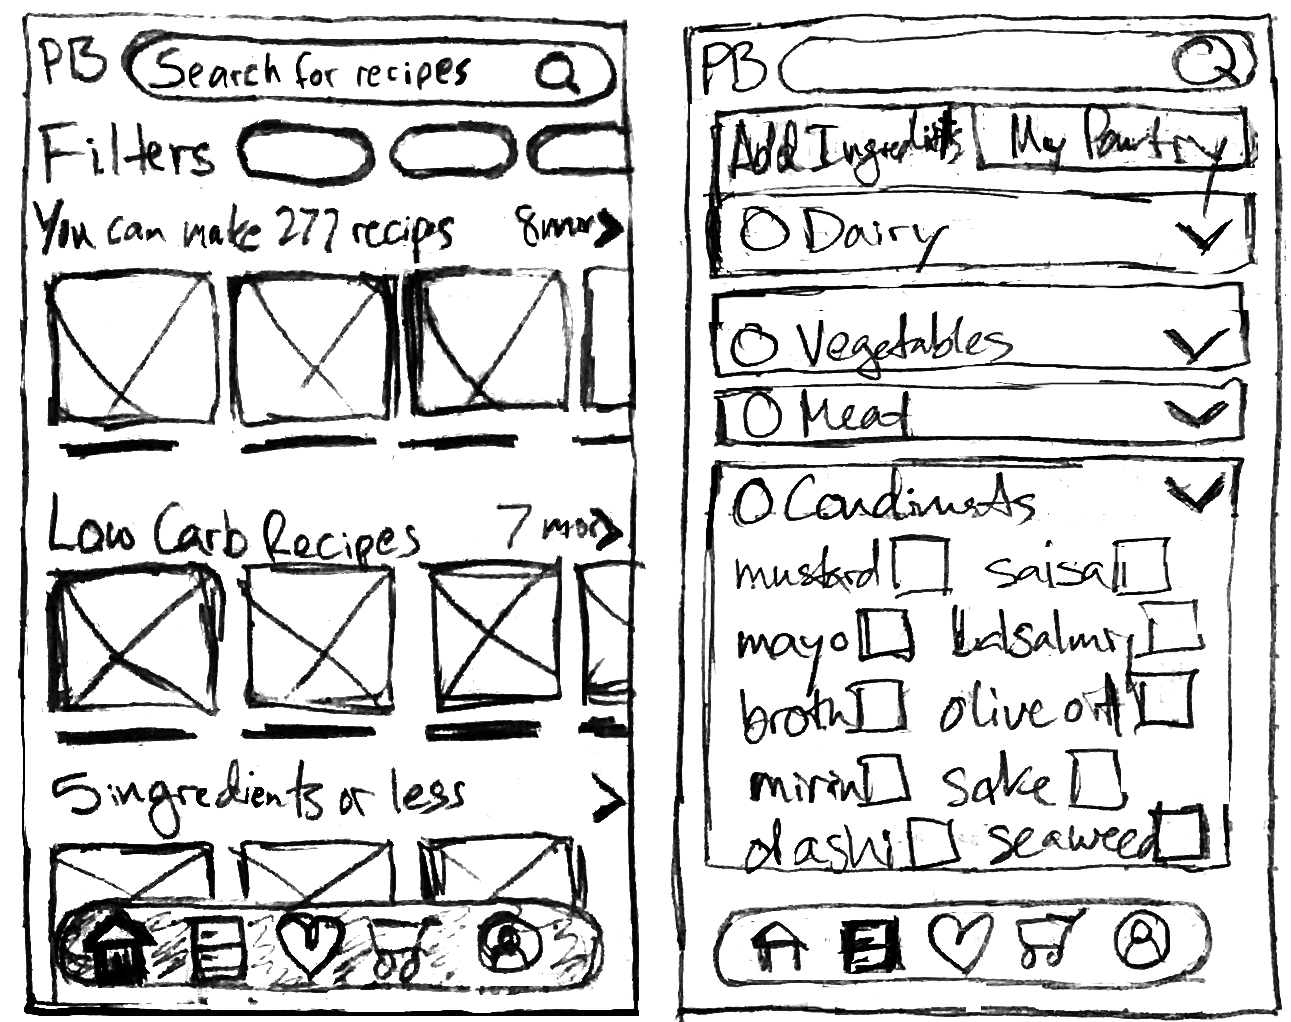 PB Search for recipes
Filters
You can make 277 recipes 8 more
Low Carb Recipes 7 more
5 ingredients or less
PB
Add Ingredients My Pantry
O Dairy
O Vegetables
O Meat
O Condiments
mustard salsa
mayo
broth olive oil
mirin sake
dashi seaweed